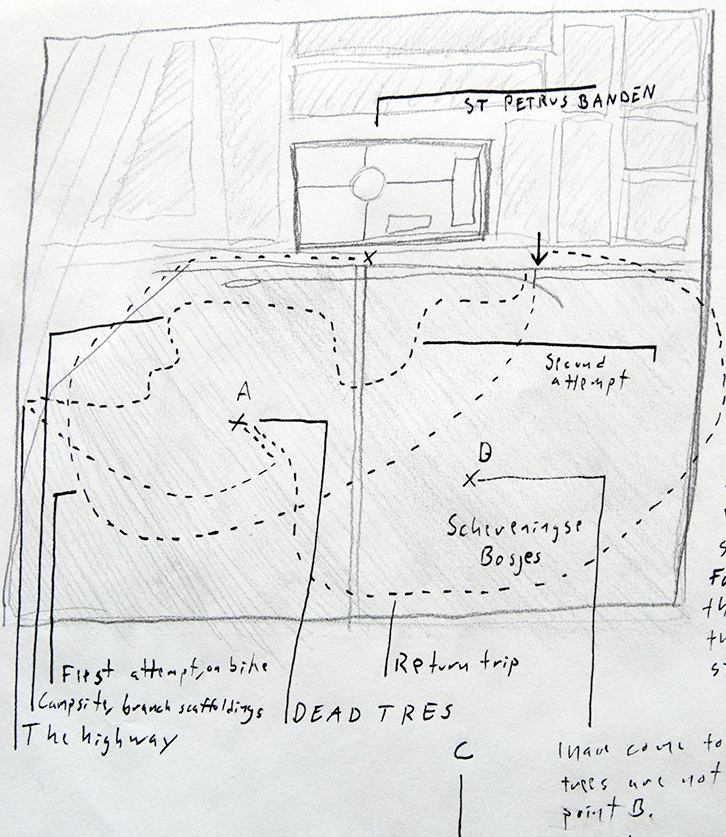 ST PETRUS BANDEN
Second
attempt
A
B
Scheveningse
Bosjes
First attempt, on bike
Campsite, branch scaffoldings
The highway
Return trip
DEAD TRES
C
I have come to
trees are not
point B.